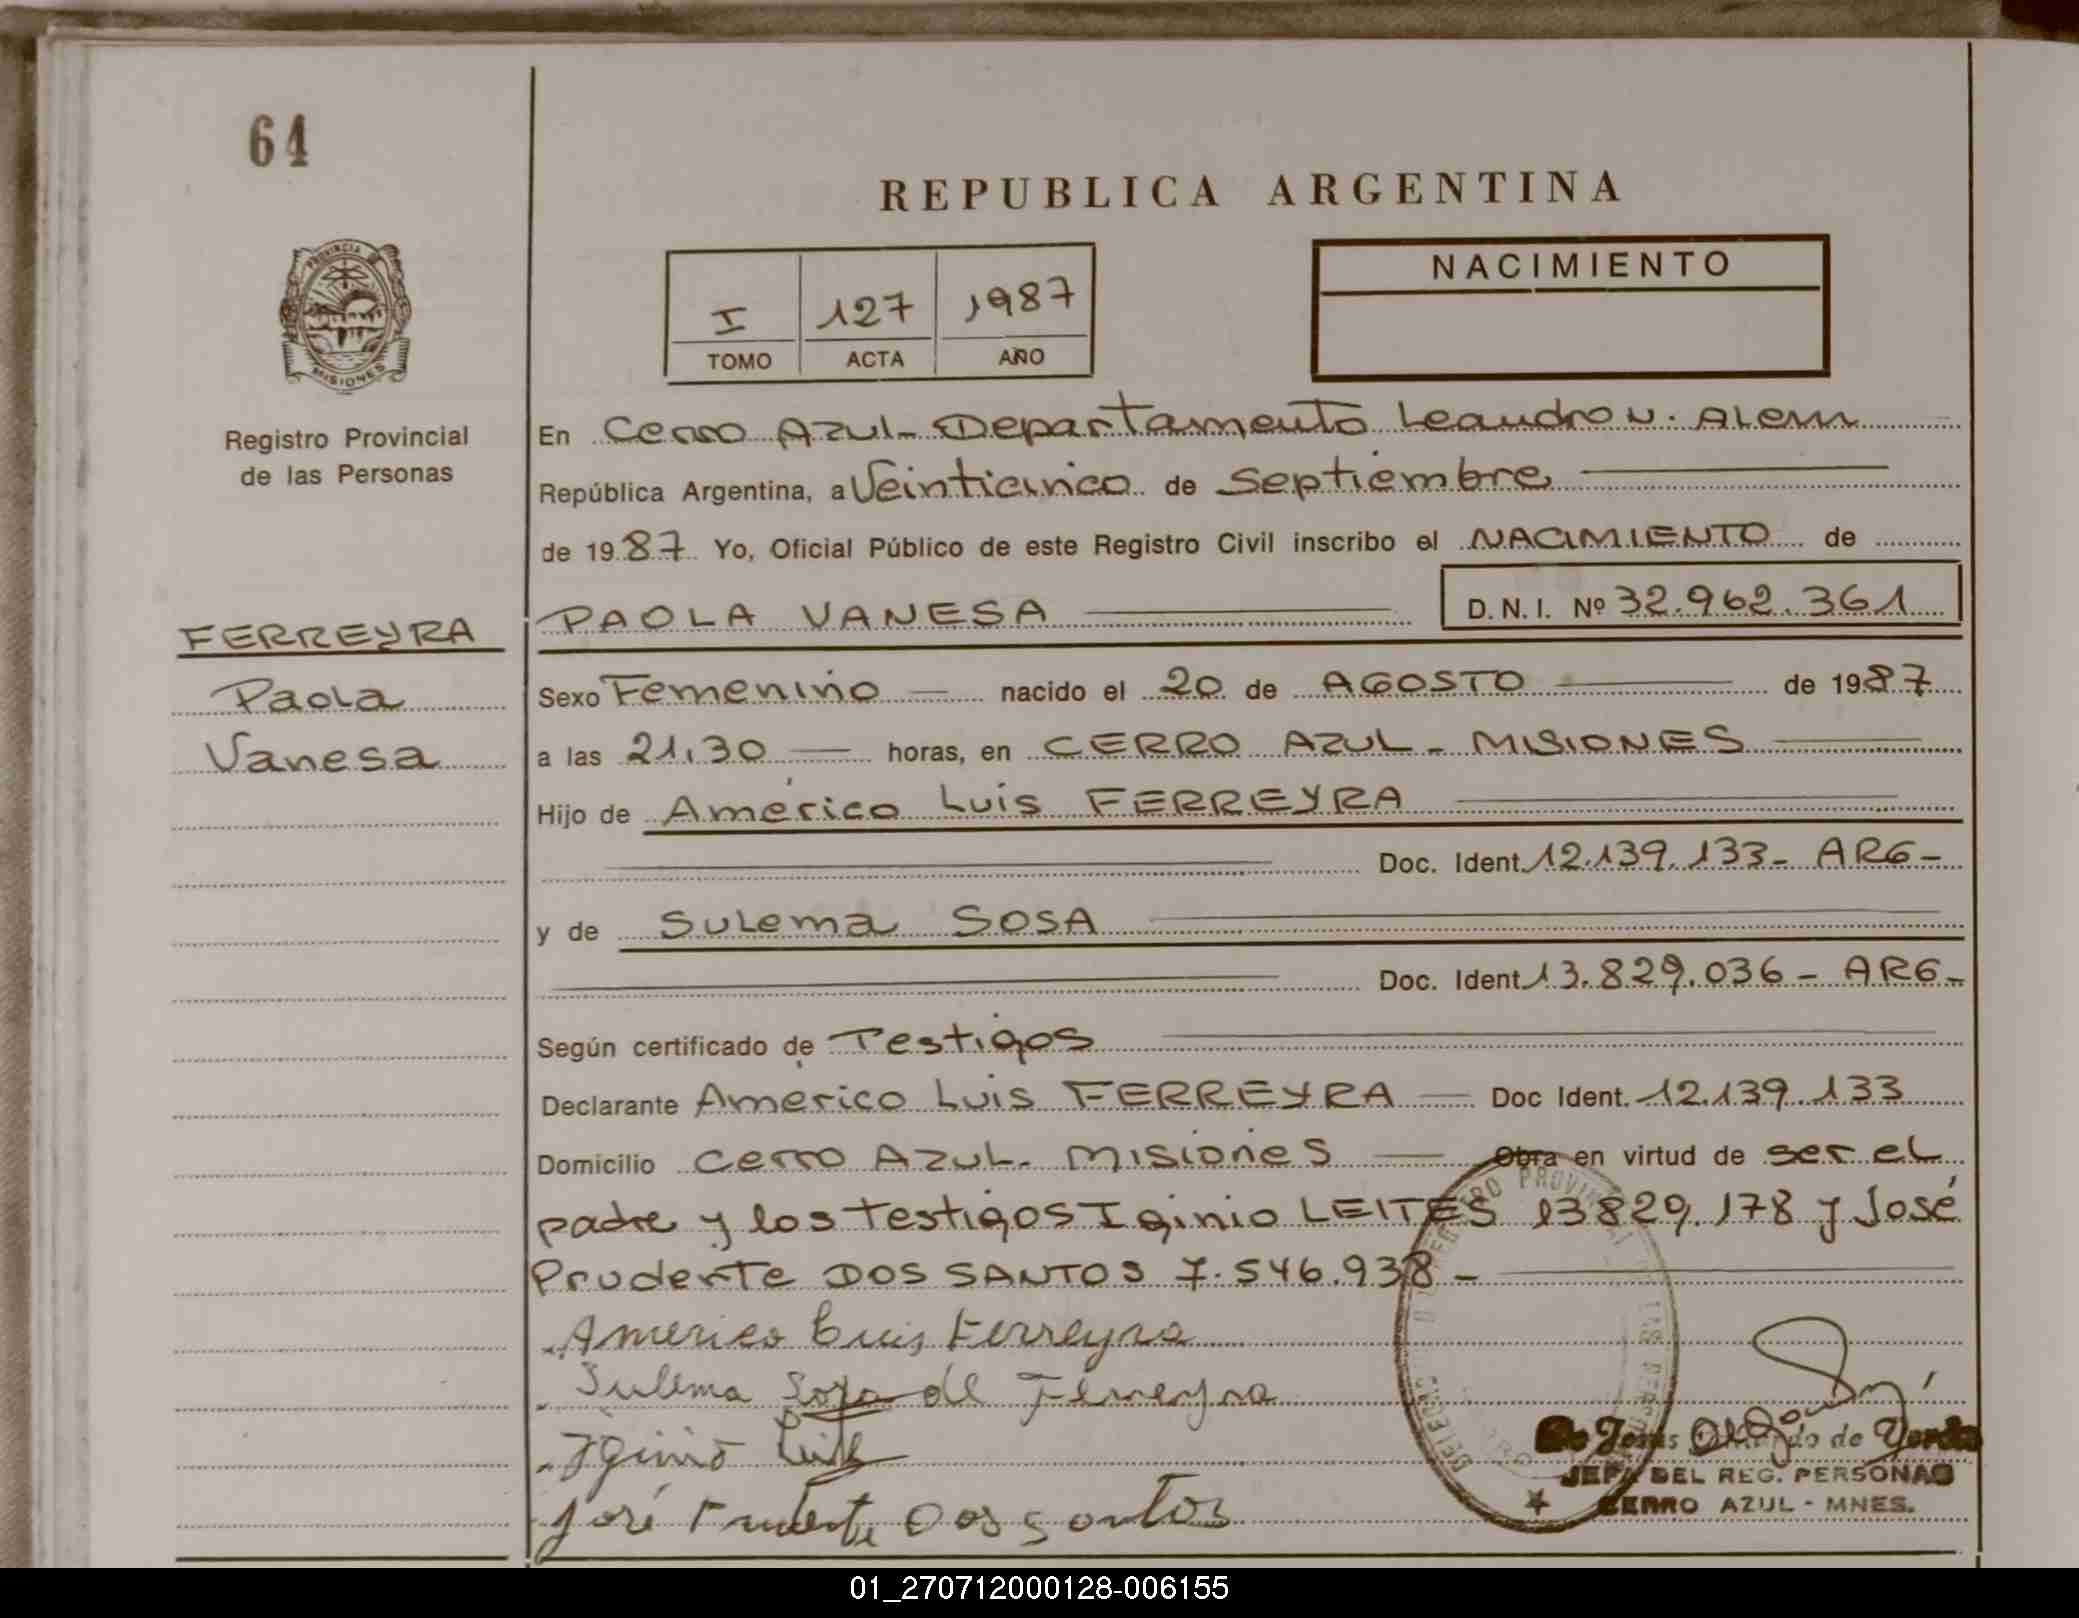 64
REPUBLICA ARGENTINA
PROVINCIA DE
MISIONES
Registro Provincial
de las Personas
I 127 1987
TOMO ACTA AÑO
NACIMIENTO
En Cerro Azul - Departamento Leandro N. Alem
República Argentina, a Veinticinco de Septiembre
de 1987 Yo, Oficial Público de este Registro Civil inscribo el NACIMIENTO de
PAOLA VANESA D.N.I. Nº 32.962.361
FERREYRA
Paola
Vanesa
Sexo Femenino nacido el 20 de AGOSTO de 1987
a las 21,30 horas, en CERRO AZUL - MISIONES
Hijo de Américo Luis FERREYRA
Doc. Ident. 12.139.133 - ARG -
y de Sulema SOSA
Doc. Ident. 13.829.036 - ARG -
Según certificado de Testigos
Declarante Américo Luis FERREYRA Doc Ident. 12.139.133
Domicilio Cerro Azul. Misiones Obra en virtud de ser el
padre y los testigos Iginio LEITES 13829.178 y José
Prudente DOS SANTOS 7.546.938 -
Americo Luis Ferreyra
Sulema Sosa de Ferreyra
Iginio
José Prudente Dos Santos
de Jesús de
JEFA DEL REG. PERSONAS
CERRO AZUL - MNES.
01_270712000128-006155